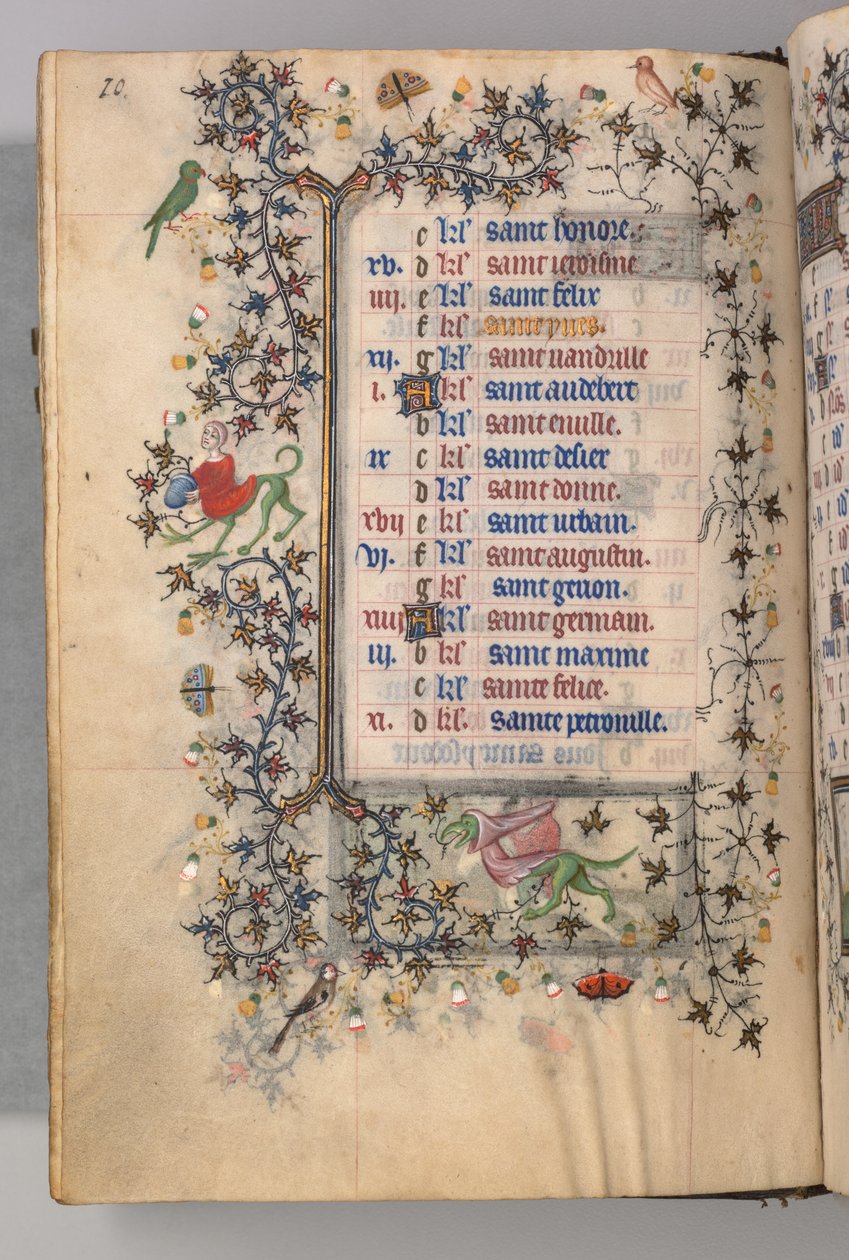 20.
c kl' saint honore.
xv. d kl' saint ieroisme
iiij. e kl' saint felix
f kl' saint yues.
xij. g kl' saint uandrille
i. A kl' saint audebert
b kl' saint enuille.
ix c kl' saint desier
d kl' saint donne.
xvij e kl' saint urbain.
vj. f kl' saint augustin.
g kl' saint geuon.
xiiij A kl' saint germain.
iij. b kl' saint maxime
c kl' sainte felice.
xi. d kl'. sainte petronille.